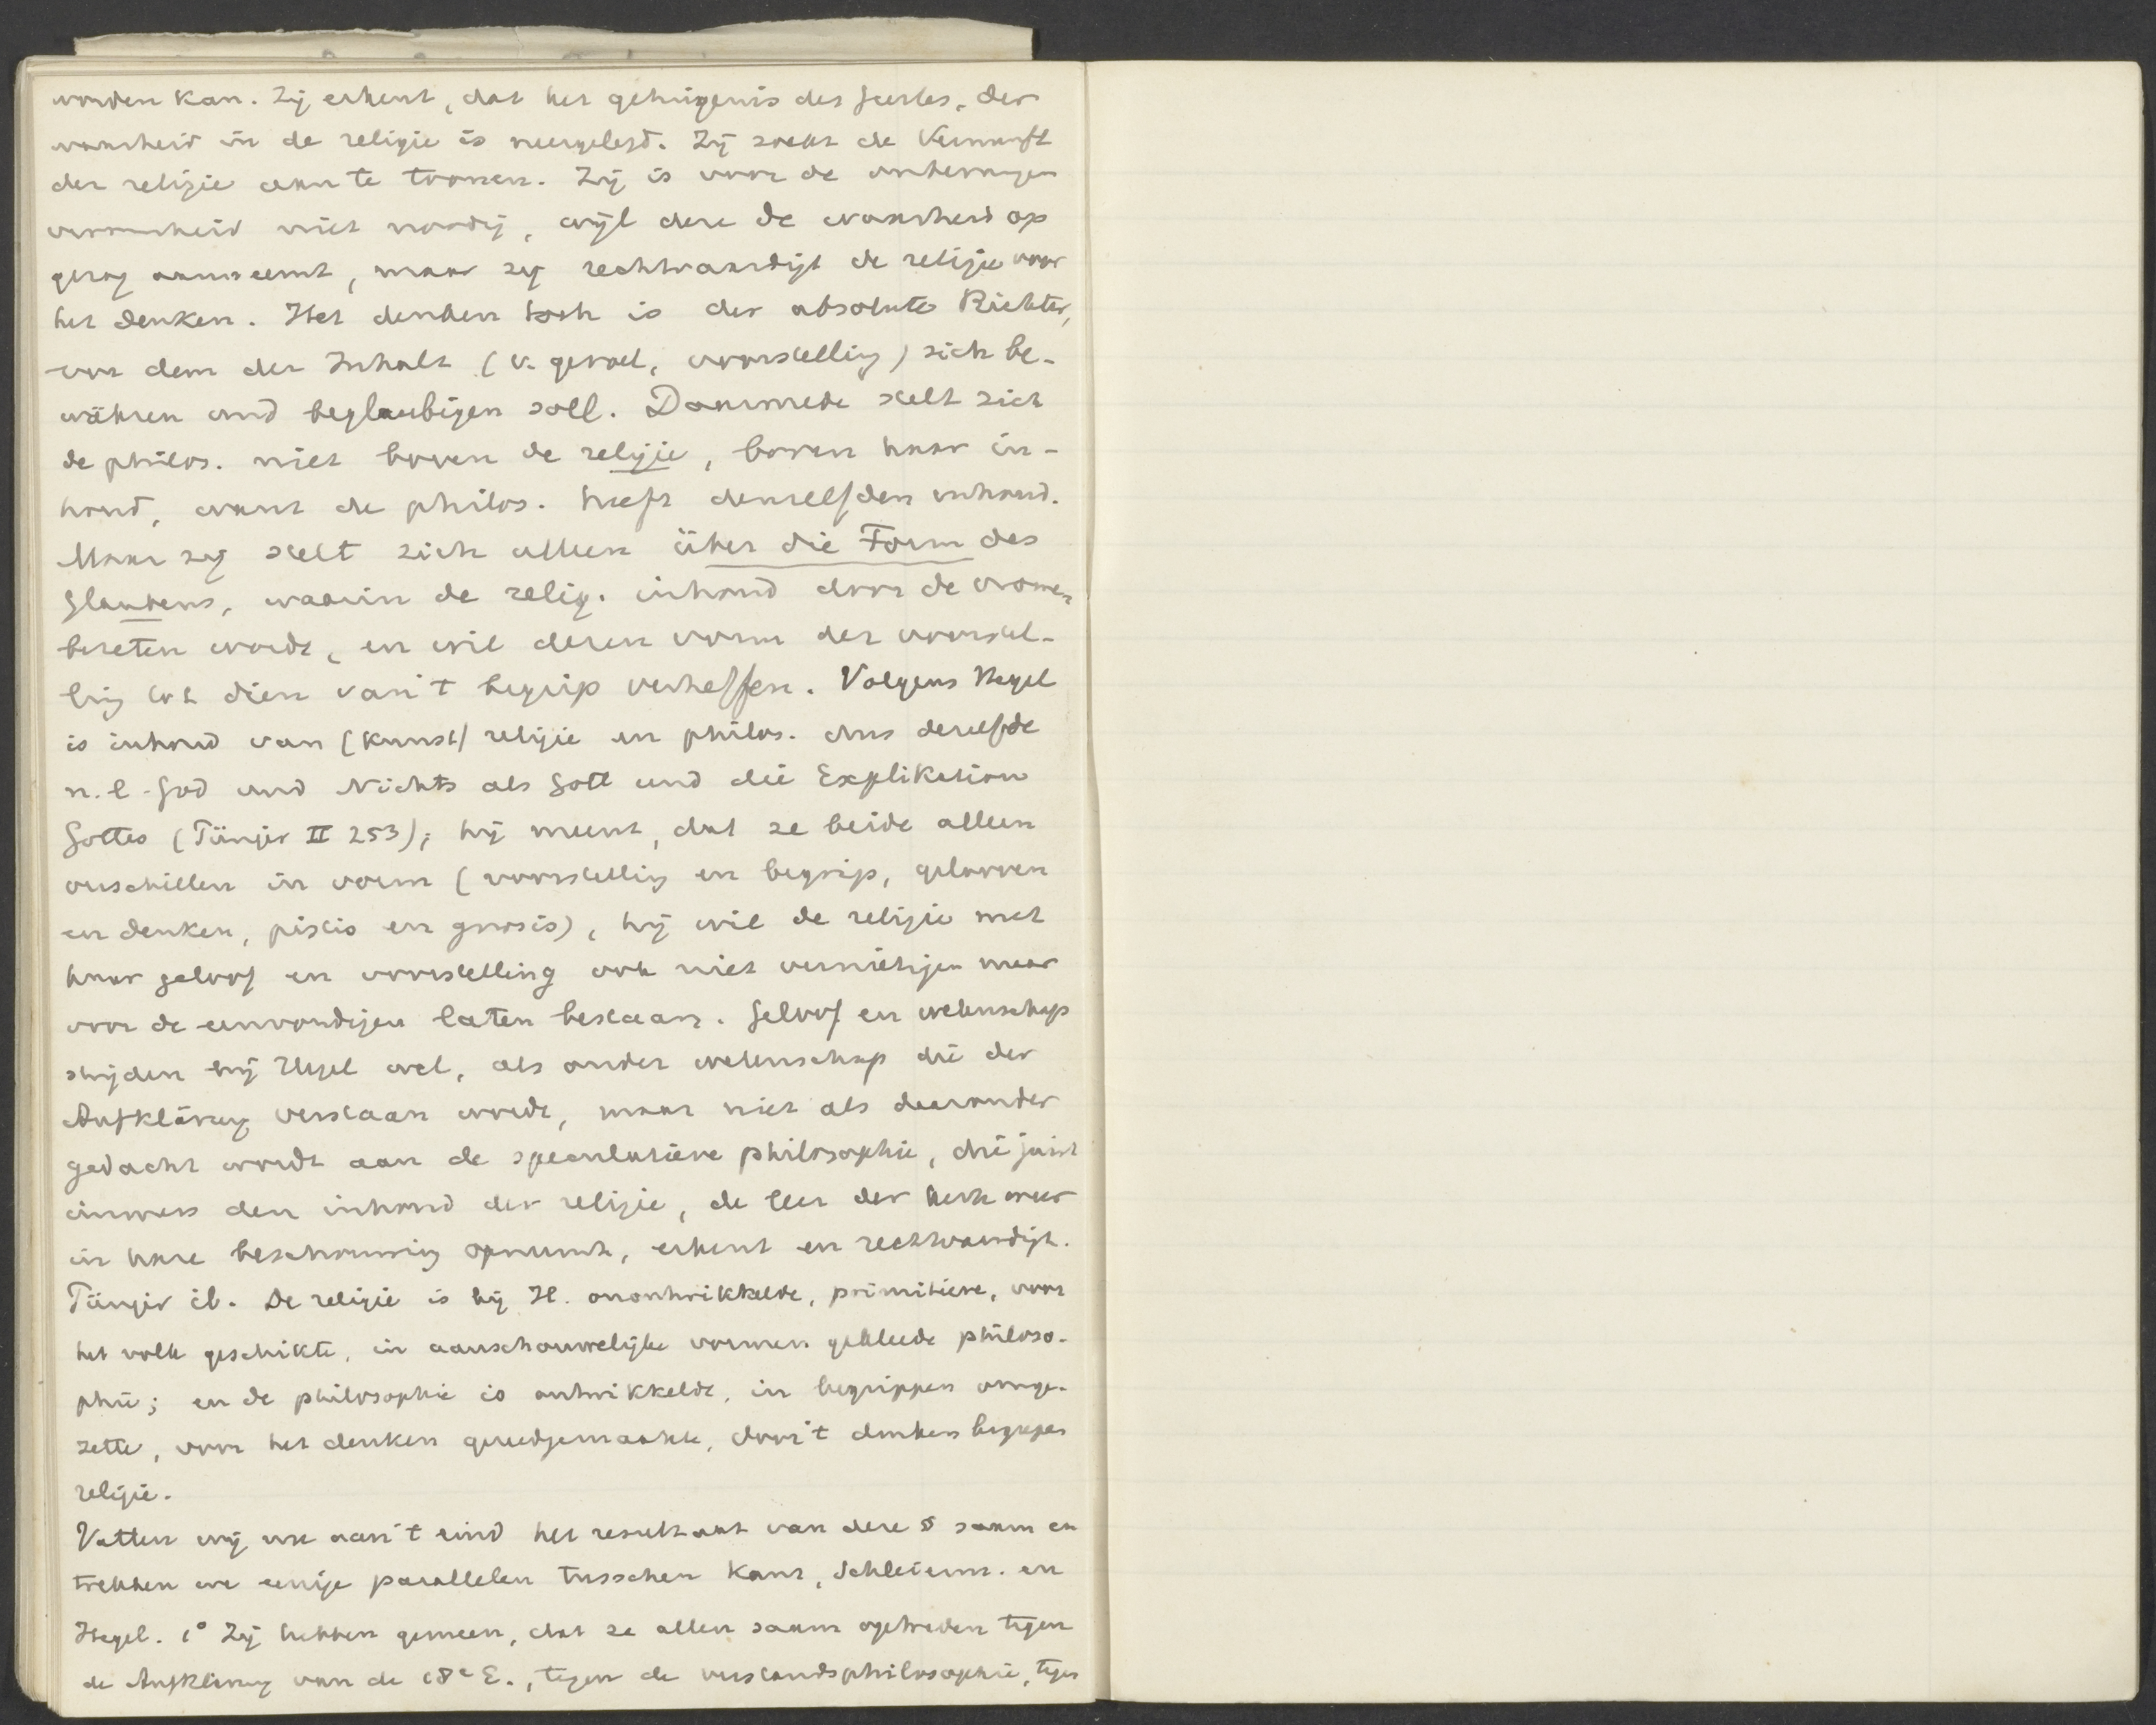 worden kan. Zij erkent, dat het getuigenis des Geestes, der
waarheid in de religie is neergelegd. Zij zoekt de Vernunft
der religie aan te toonen. Zij is voor de onbevangen
vroomheid niet noodig, wijl deze de waarheid op
gezag aanneemt, maar zij rechtvaardigt de religie voor
het denken. Het denken toch is der absolute Richter,
vor dem der Inhalt (v. gevoel, voorstelling) sich be-
währen und beglaubigen soll. Daarmede stelt zich
de philos. niet boven de religie, boven haar in-
houd, want de philos. heeft denzelfden inhoud.
Maar zij stelt zich alleen über die Form des
Glaubens, waarin de relig. inhoud door de vromen
bezeten wordt, en wil dezen vorm der voorstel-
ling tot dien van 't begrip verheffen. Volgens Hegel
is inhoud van (kunst) religie en philos. dus dezelfde
n.l. God und Nichts als Gott und die Explikation
Gottes (Pünjer II 253); hij meent, dat ze beide alleen
verschillen in vorm (voorstelling en begrip, gelooven
en denken, pistis en gnosis), hij wil de religie met
haar geloof en voorstelling ook niet vernietigen maar
voor de eenvoudigen laten bestaan. Geloof en wetenschap
strijden bij Hegel wel, als onder wetenschap die der
Aufklärung verstaan wordt, maar niet als daaronder
gedacht wordt aan de speculatieve philosophie, die juist
immers den inhoud der religie, de leer der kerk weer
in hare beschouwing opneemt, erkent en rechtvaardigt.
Pünjer ib. De religie is bij H. onontwikkelde, primitieve, voor
het volk geschikte, in aanschouwelijke vormen gekleede philoso-
phie; en de philosophie is ontwikkelde, in begrippen omge-
zette, voor het denken gereedgemaakte, door 't denken begrepen
religie.
Vatten wij nu aan 't eind het resultaat van deze § saam en
trekken we eenige parallelen tusschen Kant, Schleierm. en
Hegel. 1° Zij hebben gemeen, dat ze allen saam optreden tegen
de Aufklärung van de 18e E., tegen de verstandsphilosophie, tegen